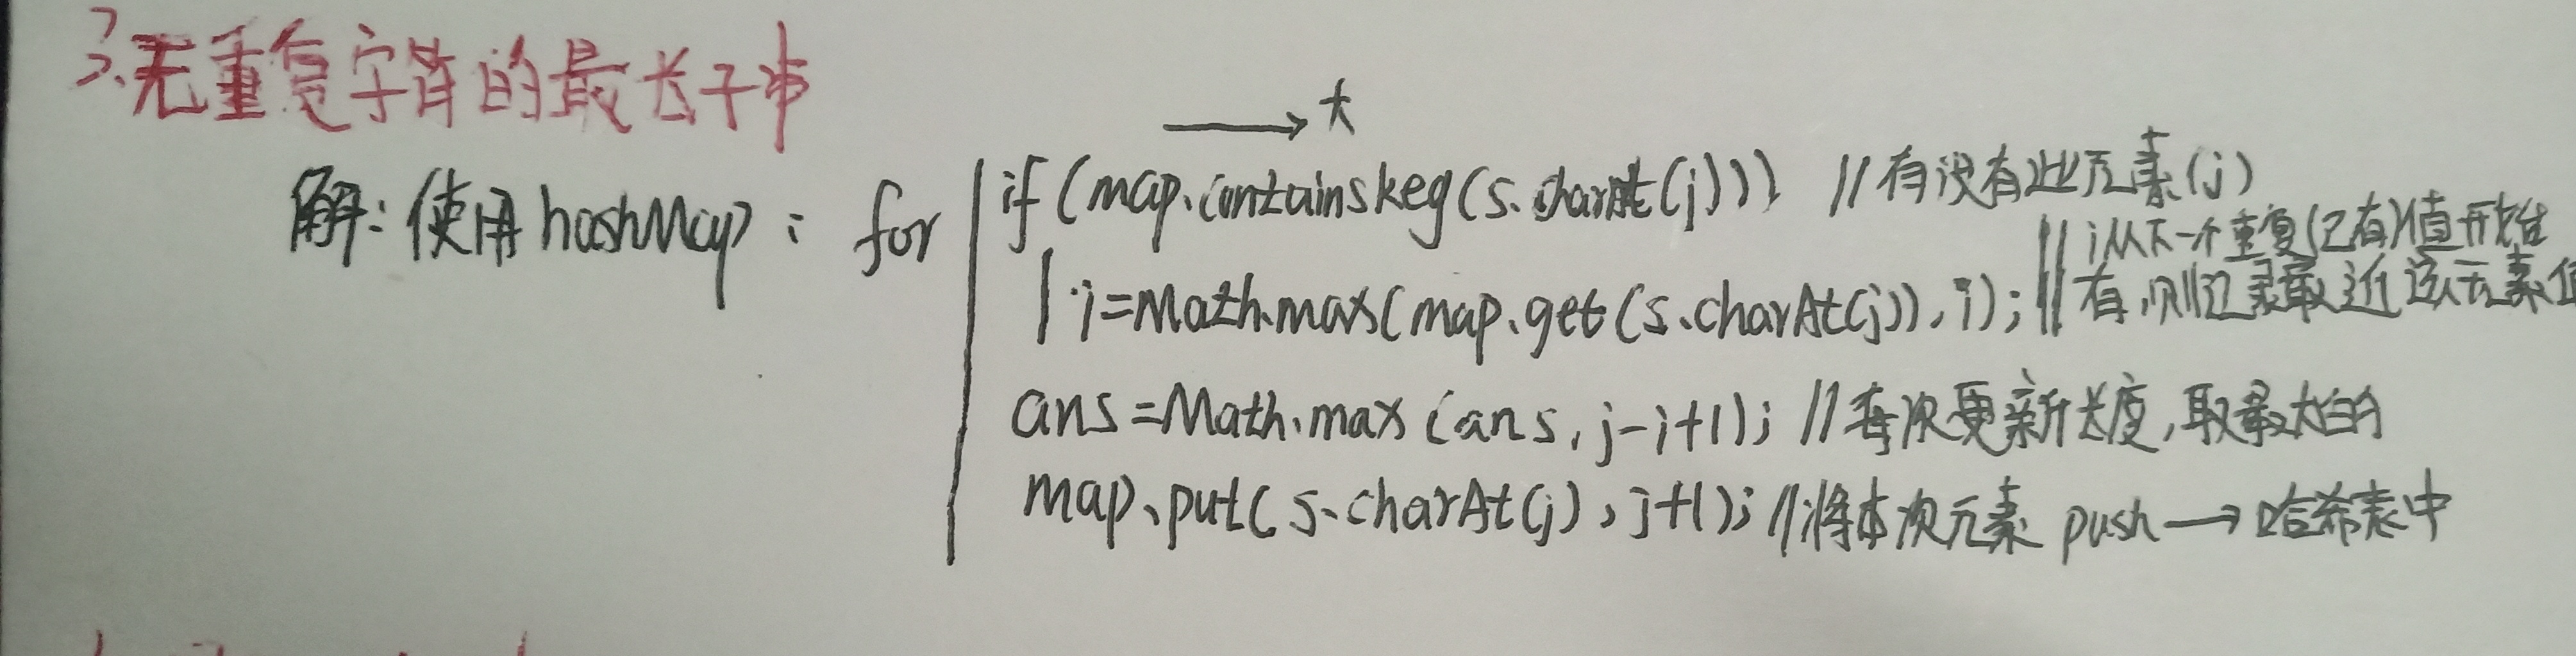 3.无重复字符的最长子串
→大
解:使用hashMap: for if(map.containskey(s.charAt(j))) //有没有此元素(j)
//i从下一个重复(已有)值开始
i=Math.max(map.get(s.charAt(j)),i); //有,则记录最近该元素值
ans=Math.max(ans,j-i+1); //每次更新长度,取最大的
map.put(s.charAt(j),j+1); //将本次元素push→哈希表中